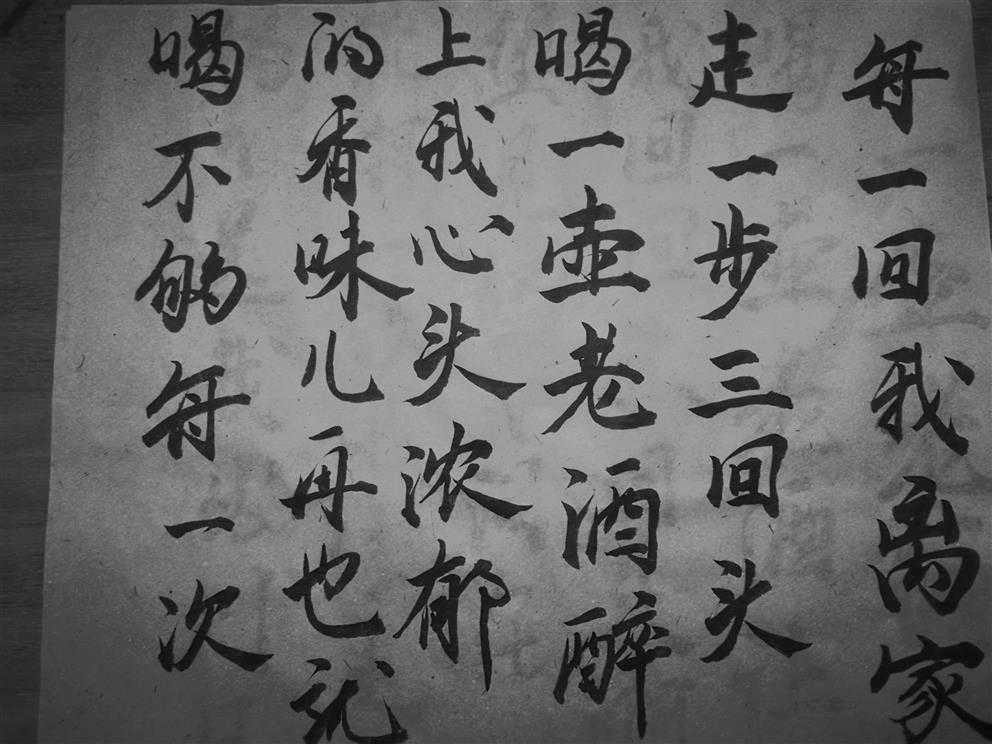 每一回我离家
走一步三回头
喝一壶老酒醉
上我心头浓郁
的香味儿再也就
喝不够每一次